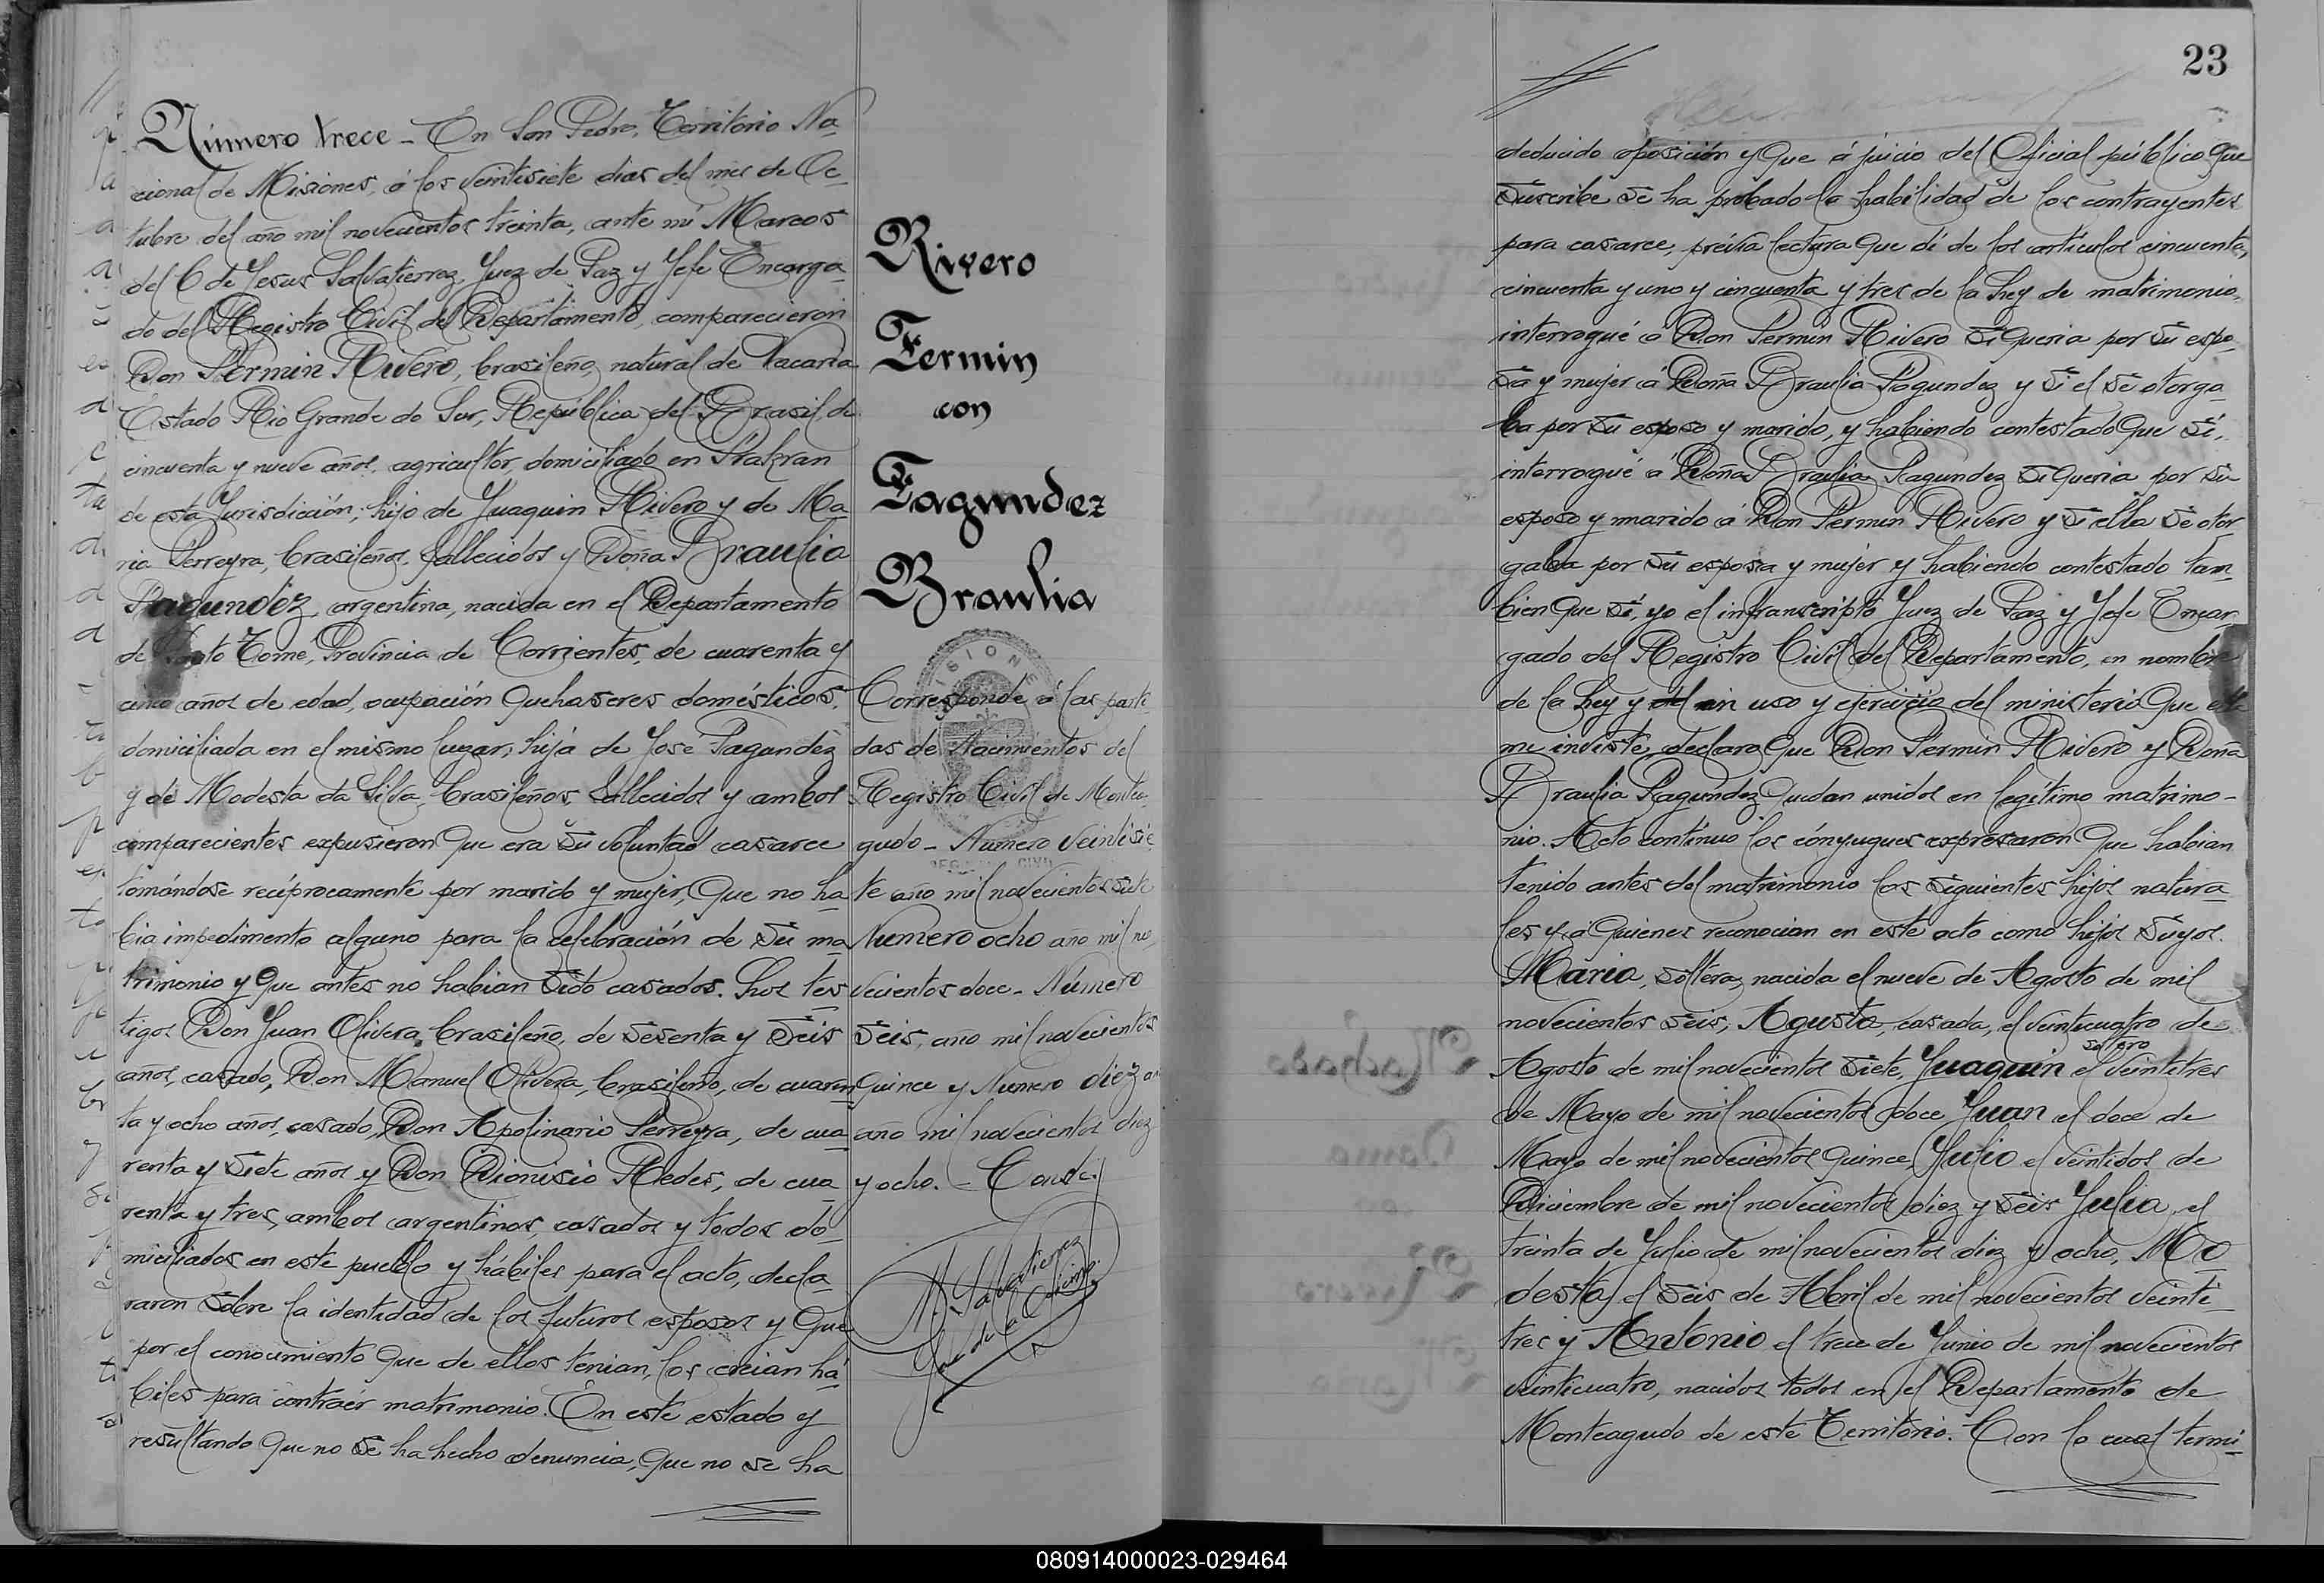 Número trece - En San Pedro, Territorio Na-
cional de Misiones, á los veintisiete dias del mes de Oc-
tubre del año mil novecientos treinta, ante mi Marcos
del C de Jesus Salvatierrez, Juez de Paz y Jefe Encarga-
do del Registro Civil del Departamento, comparecieron
Don Fermin Rivero, brasileño, natural de Vacaria
Estado Rio Grande do Sur, República del Brasil, de
cincuenta y nueve años, agricultor, domiciliado en
de esta Jurisdición; hijo de Juaquin Rivero y de Ma-
ria Ferreyra, brasileños, fallecidos y Doña Braulia
Fagundez, argentina, nacida en el Departamento
de Santo Tomé, Provincia de Corrientes, de cuarenta y
cinco años de edad, ocupación quehaseres domésticos,
domiciliada en el mismo lugar; hija de Jose Fagundez
y de Modesta da Silva, brasileños, fallecidos y ambos
comparecientes expusieron que era su voluntad casarce
tomándose recíprocamente por marido y mujer, que no ha-
bia impedimento alguno para la celebración de su ma-
trimonio y que antes no habian sido casados. Los tes-
tigos Don Juan Olivera, brasileño, de sesenta y seis
años, casado, Don Manuel Olivera, brasileño, de cuaren-
ta y ocho años, casado, Don Apolinario Ferreyra, de cua-
renta y siete años y Don Dionisio Redes, de cua-
renta y tres, ambos argentinos, casados y todos do-
miciliados en este pueblo y hábiles para el acto, decla-
raron sobre la identidad de los futuros esposos y que
por el conocimiento que de ellos tenian, los creian há-
biles para contraér matrimonio. En este estado y
resultando que no se ha hecho denuncia, que no se ha
Rivero
Fermin
con
Fagundez
Braulia
Corresponde á las parti-
das de Nacimientos del
Registro Civil de Montea-
gudo - Número veintisie-
te año mil novecientos siete
Número ocho año mil no-
vecientos doce - Número
seis, año mil novecientos
quince y Numero diez
año mil novecientos diez
y ocho. - Conste.
23
deducido oposición y que á juicio del Oficial público que
suscribe se ha probado la habilidad de los contrayentes
para casarce, prévia lectura que dí de los artículos cincuenta,
cincuenta y uno y cincuenta y tres de la Ley de matrimonio,
interrogué á Don Fermin Rivero si queria por su espo-
sa y mujer á Doña Braulia Fagundez y si el se otorga-
ba por su esposo y marido, y habiendo contestado que sí,
interrogué á Doña Braulia Fagundez si queria por su
esposo y marido á Don Fermin Rivero y si ella se otor-
gaba por su esposa y mujer y habiendo contestado tam-
bien que sí, yo el infranscripto Juez de Paz y Jefe Encar-
gado del Registro Civil del Departamento, en nombre
de la Ley y en uso y ejercicio del ministerio que ella
me inviste, declaro que Don Fermin Rivero y Doña
Braulia Fagundez quedan unidos en legítimo matrimo-
nio. Acto contínuo los cónyugues expresaron que habian
tenido antes del matrimonio los siguientes hijos natura-
les y á quienes reconocian en este acto como hijos suyos.
Maria, soltera, nacida el nueve de Agosto de mil
novecientos seis, Agusta, casada, el veinticuatro de
Agosto de mil novecientos siete, Juaquin soltero el veintitres
de Mayo de mil novecientos doce Juan el doce de
Mayo de mil novecientos quince, Julio el veintidos de
Diciembre de mil novecientos diez y seis Julia, el
treinta de Julio de mil novecientos diez y ocho, Mo-
desta, el seis de Abril de mil novecientos veinti-
tres y Antonio el trece de Junio de mil novecientos
veinticuatro, nacidos todos en el Departamento de
Monteagudo de este Territorio. Con lo cual termi-
080914000023-029464